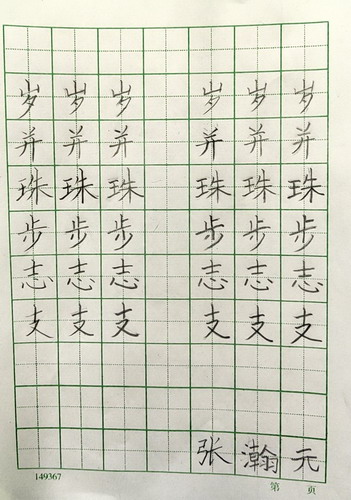 岁岁岁岁岁岁
并并并并并并
珠珠珠珠珠珠
步步步步步步
志志志志志志
支支支支支支
张瀚元
149367
第 页